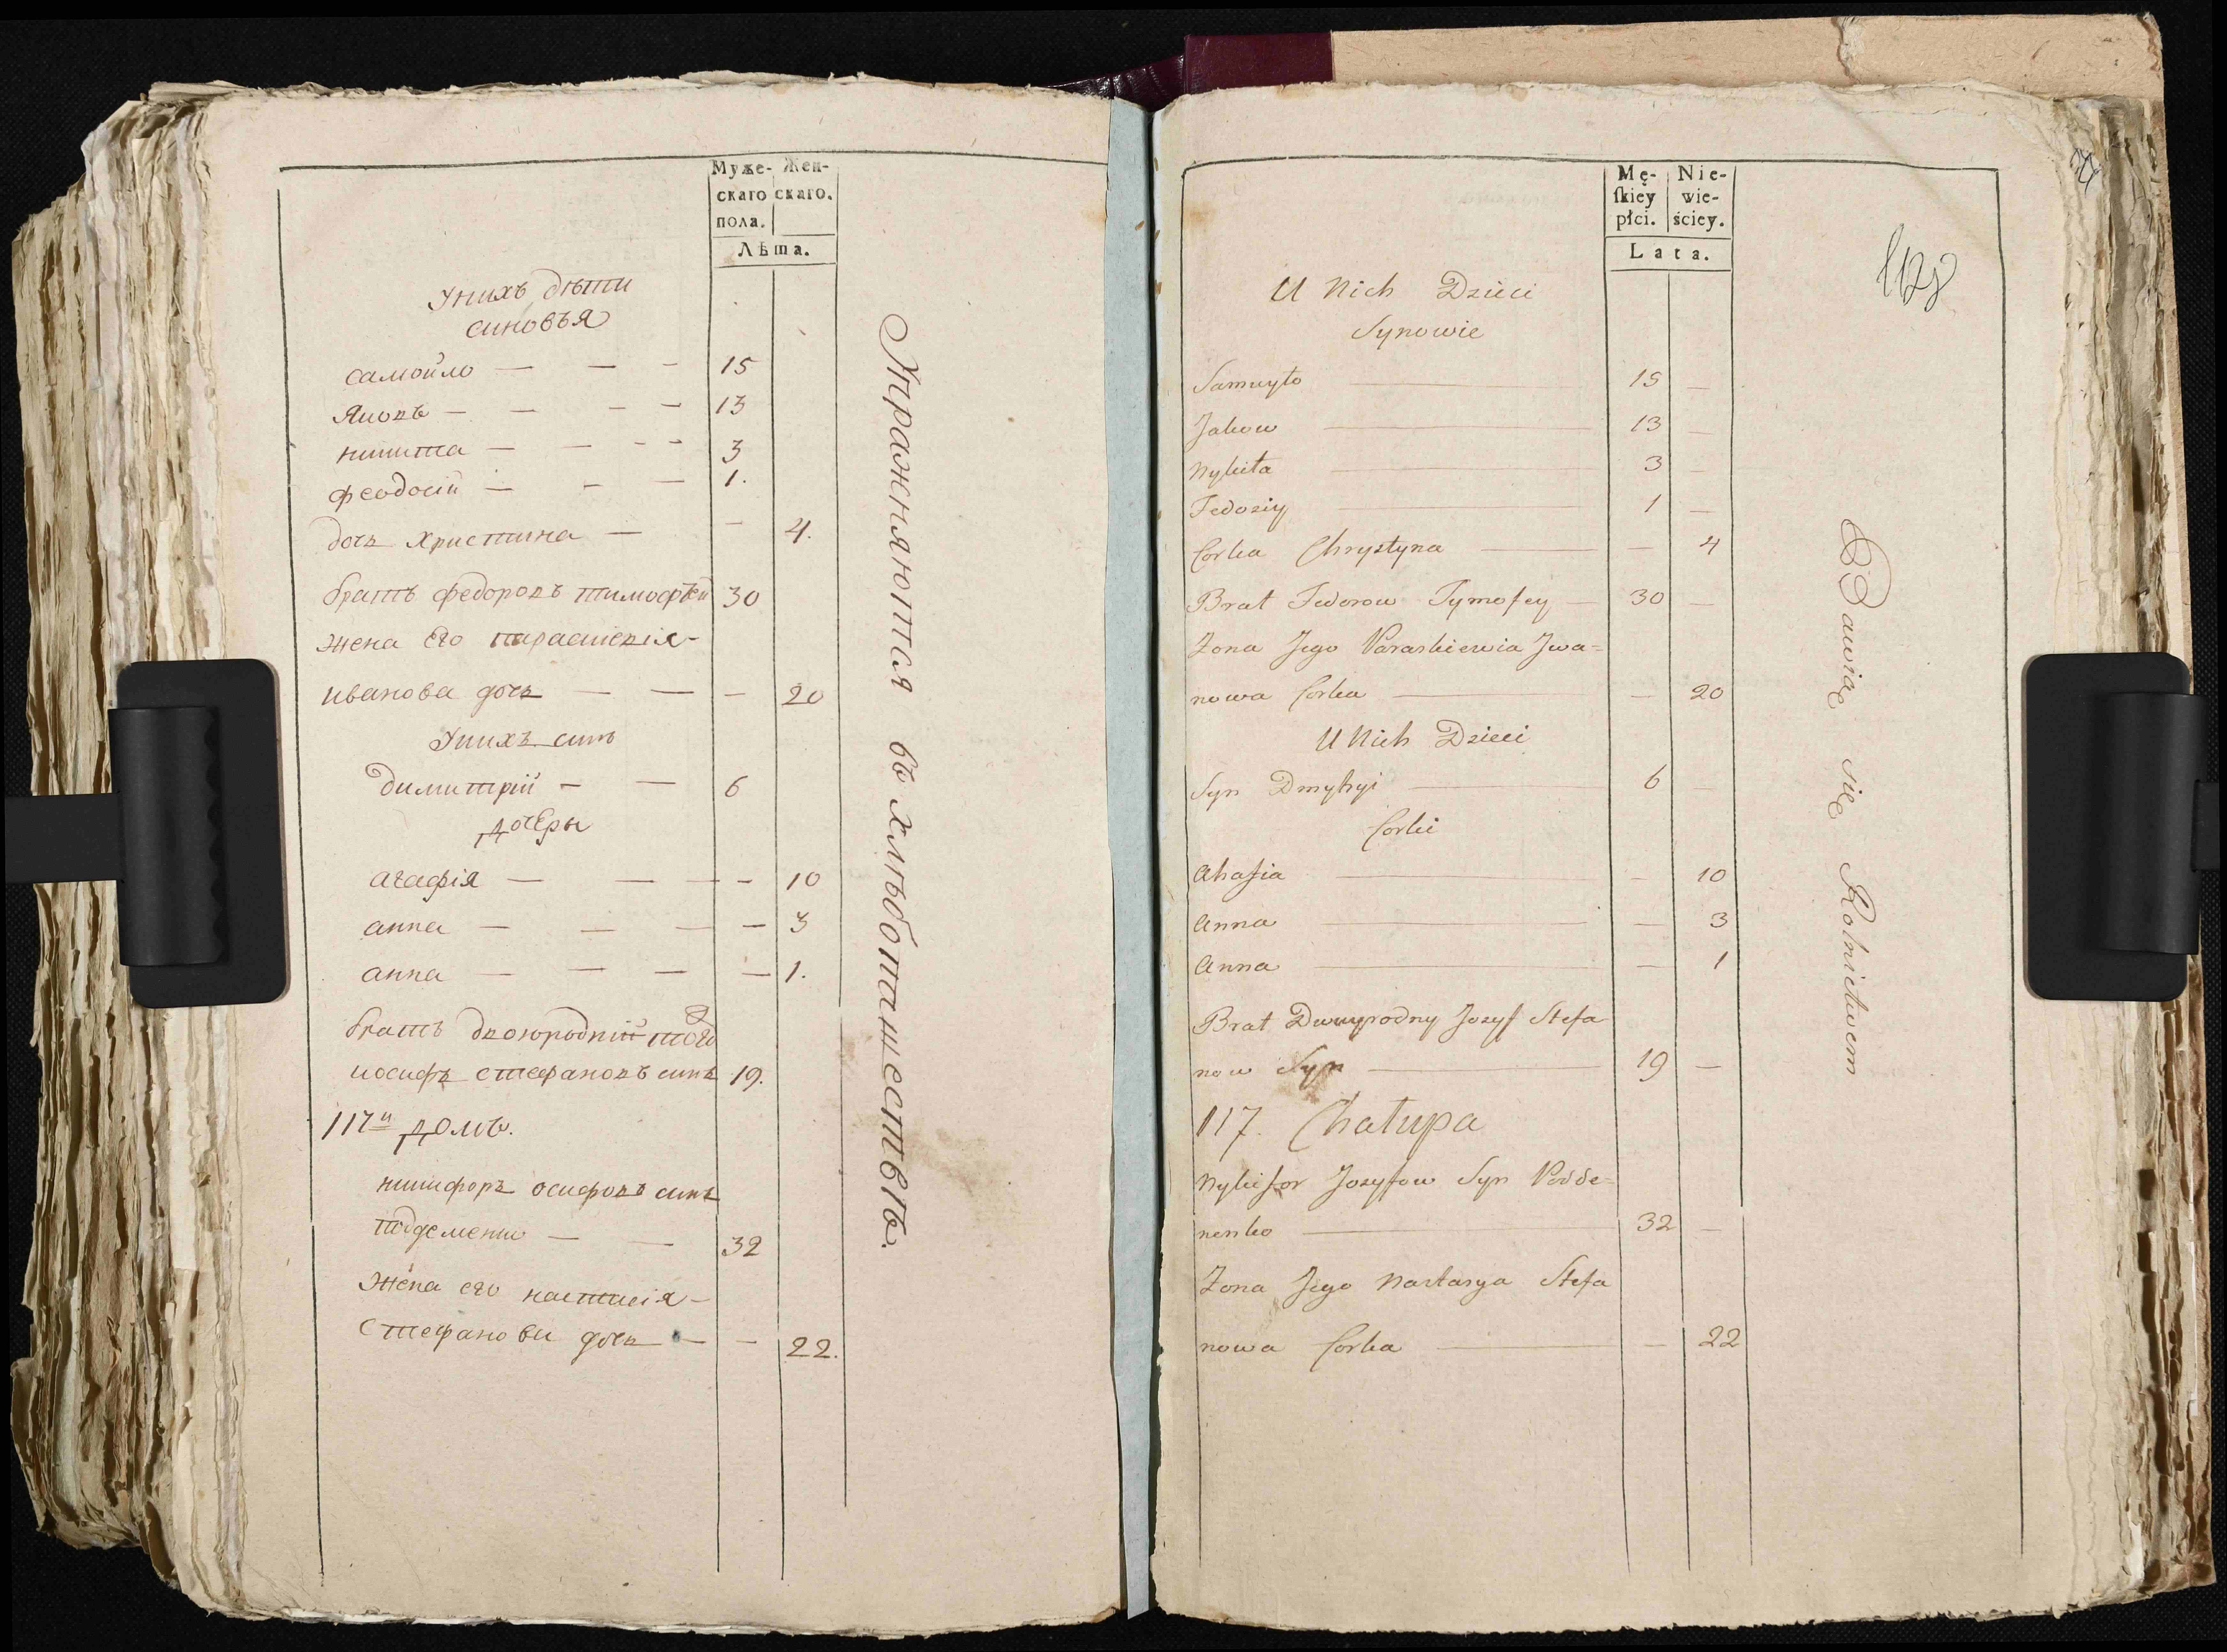 Муже- Жен-
скаго скаго.
пола.
Лѣта.
Унихъ дѣти
синовья
самойло — — — 15
Яковъ — — — — 13
никита — — — — 3
феодосій — — — 1.
дочь христина — — 4.
братъ федоровъ тимофѣй 30
жена его параскевія
иванова дочь — — — 20
Унихъ синъ
димитрій — — 6
дочеры
агафія — — — — 10
анна — — — — 3
анна — — — — 1.
братъ двоюродній того
иосифъ стефановъ синъ 19.
117й домъ.
никифоръ осифовъ синъ
— — 32
жена его настасія
стефанова дочь — — 22.
Упражняются въ хлѣбопашествѣ.
Mę- Nie-
skiey wie-
płci. ściey.
Lata.
128
U Nich Dzieci
Synowie
Samuyło — 15 —
Jakow — 13 —
Nykita — 3 —
Fedosiy — 1 —
Corka Chrystyna — — 4
Brat Fedorow Tymofey — 30 —
Żona Jego Paraskiewia Jwa=
nowa Corka — — 20
U Nich Dzieci
Syn Dmytryi — 6 —
Corki
Ahafia — — 10
Anna — — 3
Anna — — 1
Brat Dwuyrodny Jozyf Stefa
now Syn — 19 —
117. Chałupa
Nykifor Jozyfow Syn Podde=
nenko — 32 —
Żona Jego Nastasya Stefa
nowa Corka — — 22
Bawią się Rolnictwem